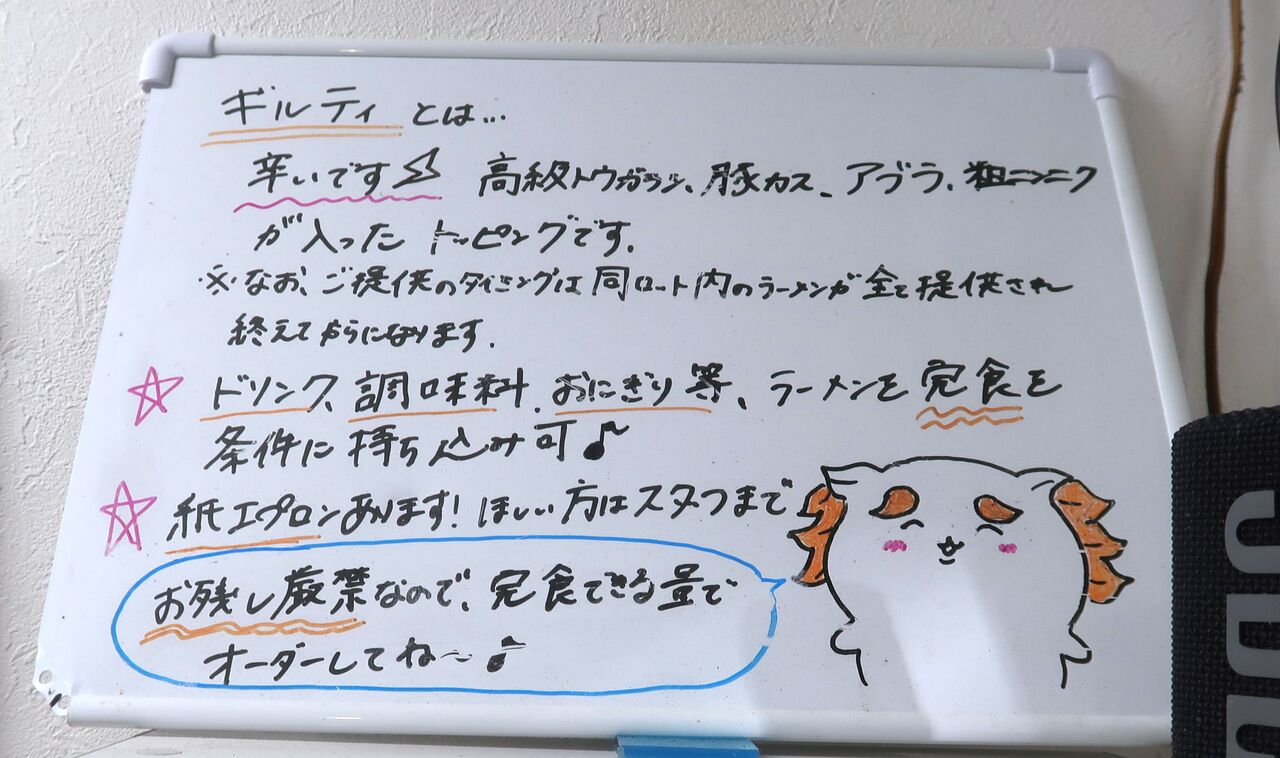 ギルティとは...
辛いです 高級トウガラシ、豚カス、アブラ、粗ニンニク
が入ったトッピングです.
※なお、ご提供のタイミングは同ロット内のラーメンが全て提供され
終えてからになります.
☆ ドリンク、調味料、おにぎり等、ラーメンを完食を
条件に持ち込み可♪
☆ 紙エプロンあります!ほしい方はスタッフまで
お残し厳禁なので、完食できる量で
オーダーしてね〜♪